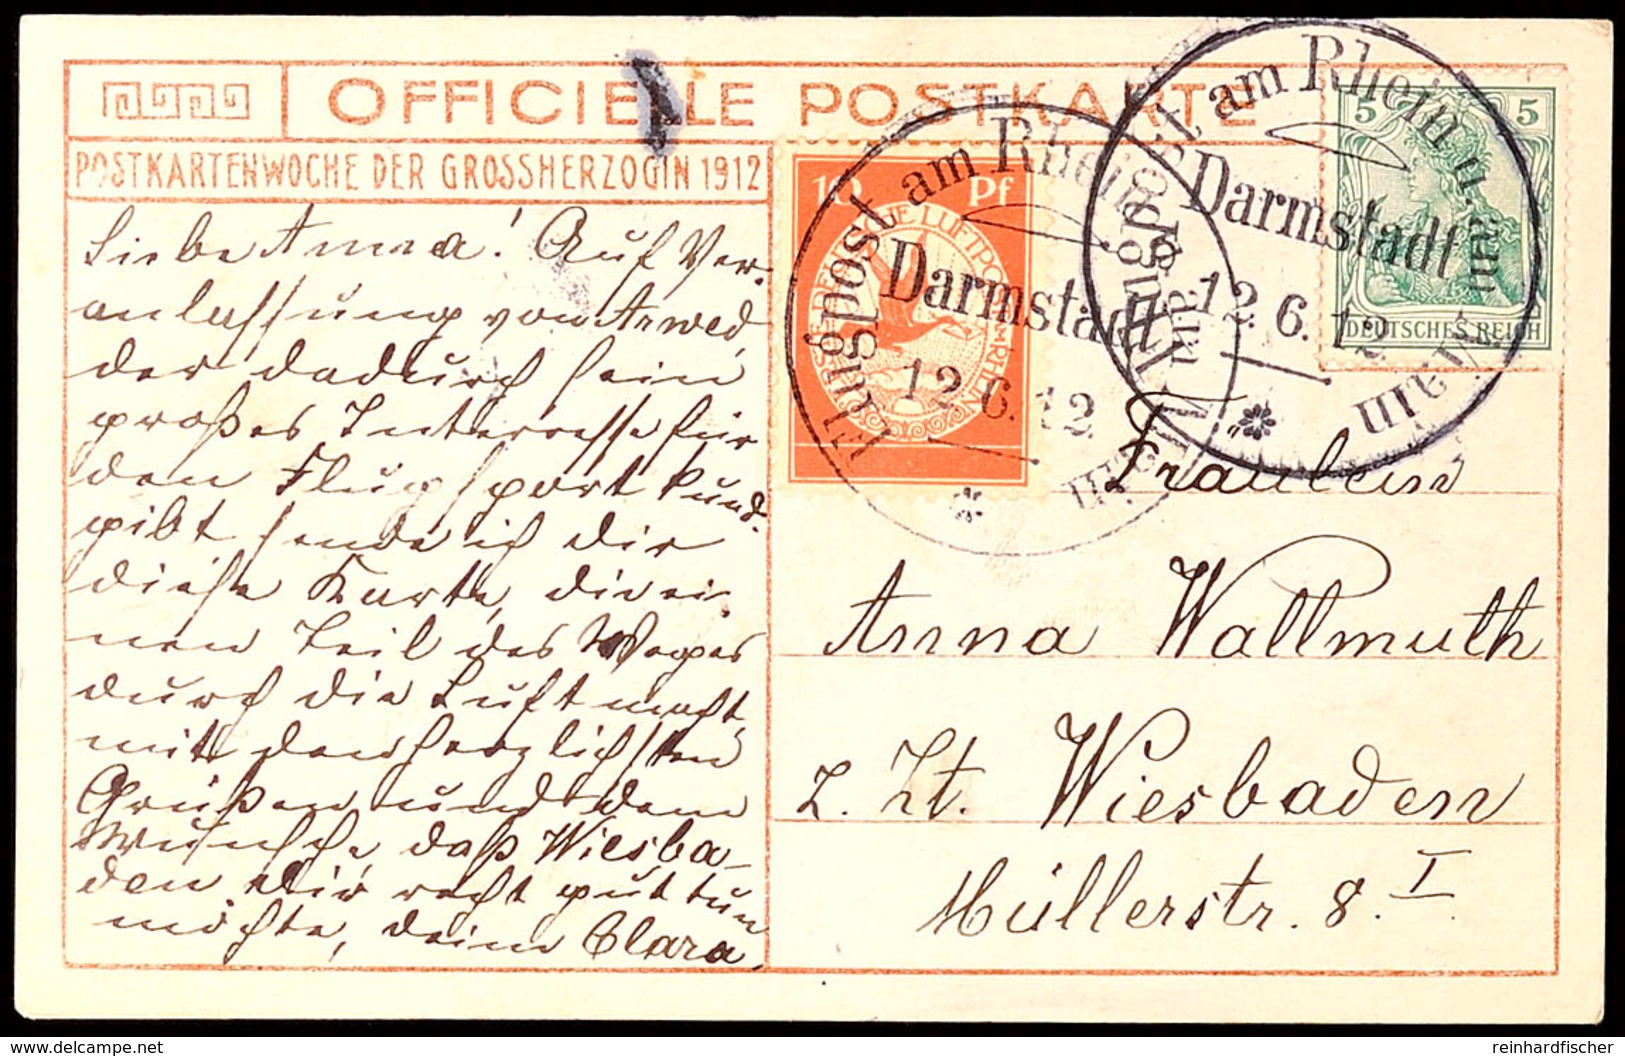 OFFICIELLE POSTKARTE
POSTKARTENWOCHE DER GROSSHERZOGIN 1912
Liebe Anna! Auf Ver-
anlassung von Arwed,
der dadurch sein
großes Interesse für
den Flugsport kund-
gibt sende ich dir
diese Karte, die ei-
nen Teil des Weges
durch die Luft macht,
mit den herzlichsten
Grüßen und dem
Wunsche, daß Wiesba-
den Dir recht gut tun
möchte, deine Clara.
10 Pf
DEUTSCHE LUFTPOST AM RHEIN
Flugpost am Rhein u. am Main
Darmstadt
12.6.12
5 5
DEUTSCHES REICH
Flugpost am Rhein u. am Main
Darmstadt
12.6.12
Fräulein
Anna Wallmuth
z. Zt. Wiesbaden
Müllerstr. 8. I
delcampe.net
reinhardfischer